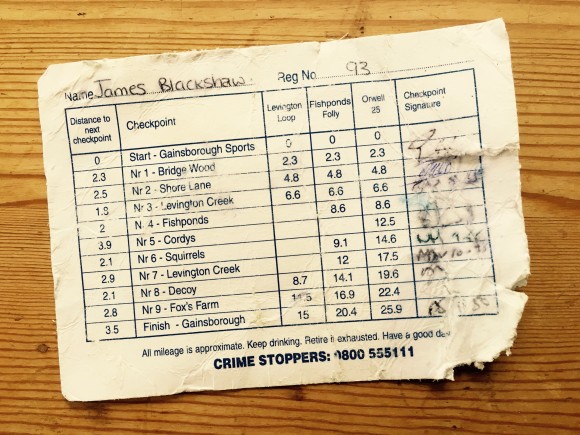 Name James Blackshaw. Reg No 93
Distance to next checkpoint Checkpoint Levington Loop Fishponds Folly Orwell 25 Checkpoint Signature
0 Start - Gainsborough Sports 0 0 0
2.3 Nr 1 - Bridge Wood 2.3 2.3 2.3
2.5 Nr 2 - Shore Lane 4.8 4.8 4.8
1.8 Nr 3 - Levington Creek 6.6 6.6 6.6
2 Nr 4 - Fishponds 8.6 8.6
3.9 Nr 5 - Cordys 12.5
2.1 Nr 6 - Squirrels 9.1 14.6
2.9 Nr 7 - Levington Creek 12 17.5
2.1 Nr 8 - Decoy 8.7 14.1 19.6
2.8 Nr 9 - Fox's Farm 11.5 16.9 22.4
3.5 Finish - Gainsborough 15 20.4 25.9
All mileage is approximate. Keep drinking. Retire if exhausted. Have a good
CRIME STOPPERS: 0800 555111